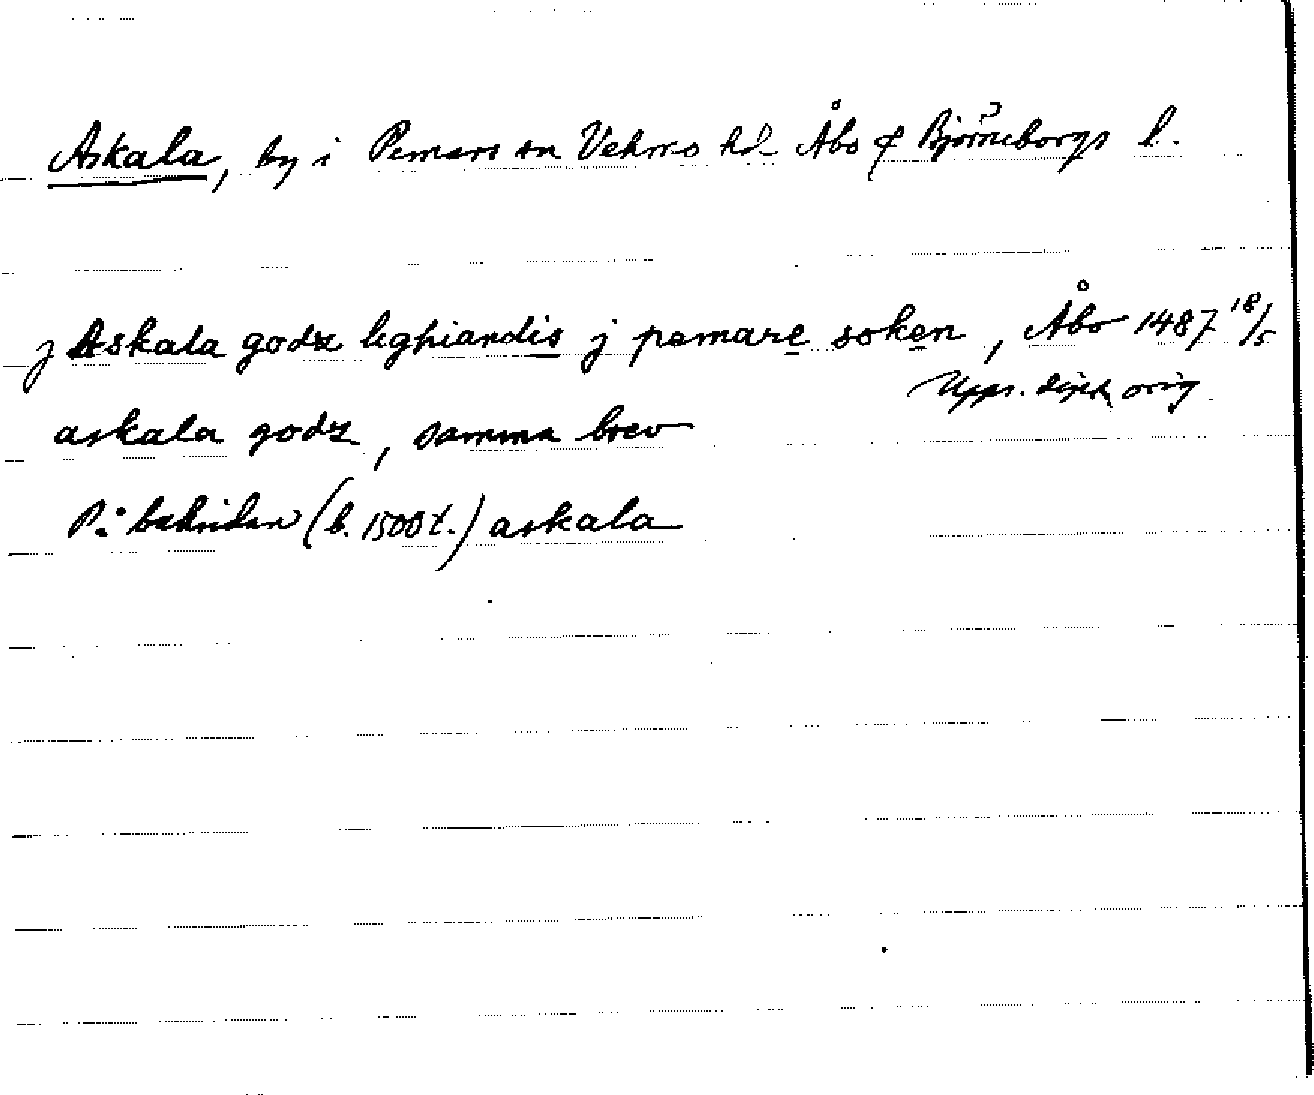 Askala, by i Pemars sn Vehmo hd Åbo & Björneborgs l.
j Askala godz leghiandis j pemare soken, Åbo 1487 18/5
Upps. dipl. orig
askala godz, samma brev
På baksidan (b. 1500 t.) askala